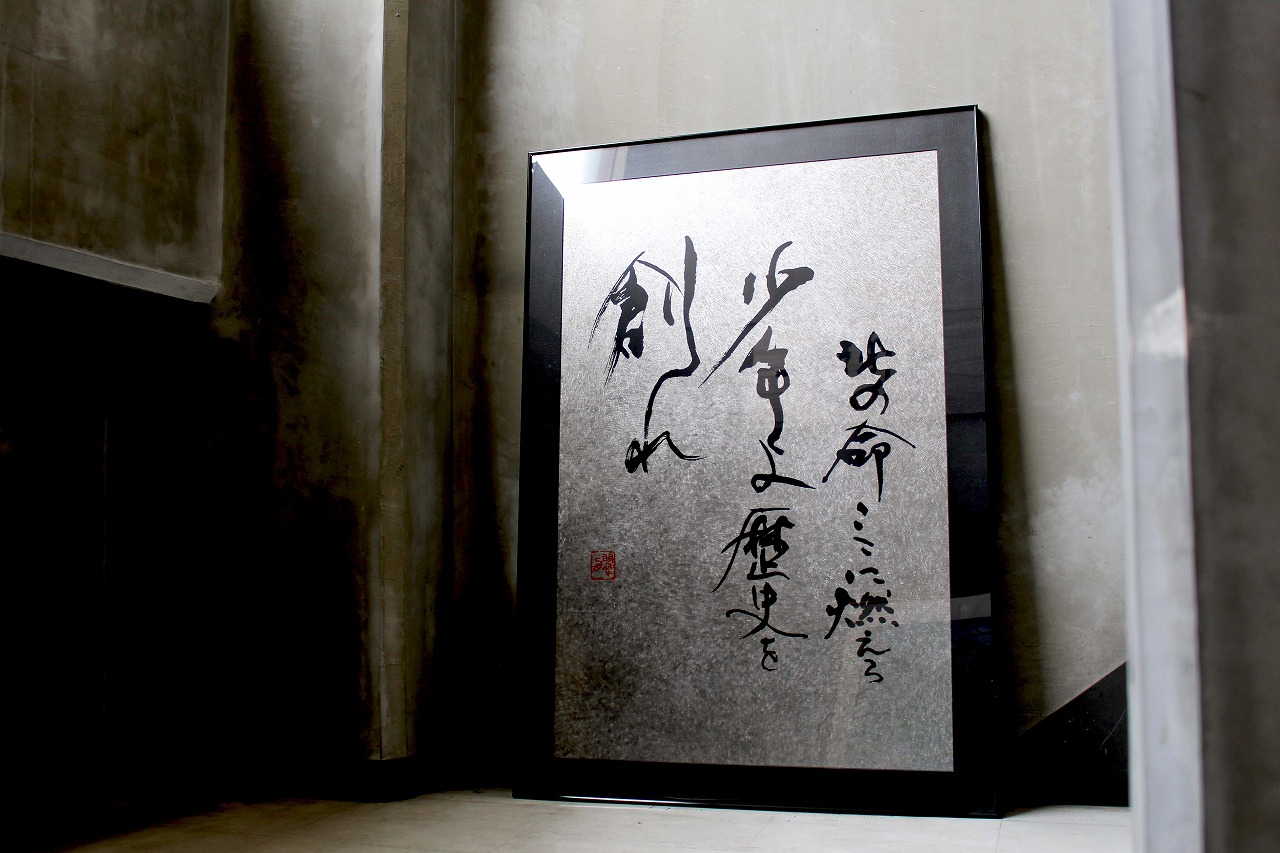 皆の命ここに燃えろ
少年よ歴史を
創れ